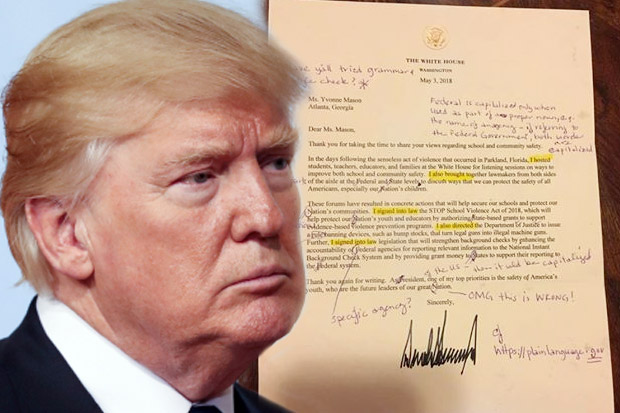 THE WHITE HOUSE
WASHINGTON
y'all tried grammar &
check? *
May 3, 2018
Ms. Yvonne Mason
Atlanta, Georgia
Federal is capitalized only when
used as part of proper noun, e.g.
the name of an agency - if referring to
the Federal Government, both words
are capitalized
Dear Ms. Mason,
Thank you for taking the time to share your views regarding school and community safety.
In the days following the senseless act of violence that occurred in Parkland, Florida, I hosted
students, teachers, educators, and families at the White House for listening sessions on ways to
improve both school and community safety. I also brought together lawmakers from both sides
of the aisle at the Federal and State levels to discuss ways that we can protect the safety of all
Americans, especially our Nation's children.
These forums have resulted in concrete actions that will help secure our schools and protect our
Nation's communities. I signed into law the STOP School Violence Act of 2018, which will
help protect our Nation's youth and educators by authorizing State-based grants to support
evidence-based violence prevention programs. I also directed the Department of Justice to issue
a rule banning devices, such as bump stocks, that turn legal guns into illegal machine guns.
Further, I signed into law legislation that will strengthen background checks by enhancing the
accountability of Federal agencies for reporting relevant information to the National Instant
Background Check System and by providing grant money to States to support their reporting to
the Federal system.
of the US - then it would be capitalized
Thank you again for writing. As President, one of my top priorities is the safety of America's
youth, who are the future leaders of our great Nation.
Sincerely,
OMG this is WRONG!
specific agency?
cf
https://plainlanguage.gov